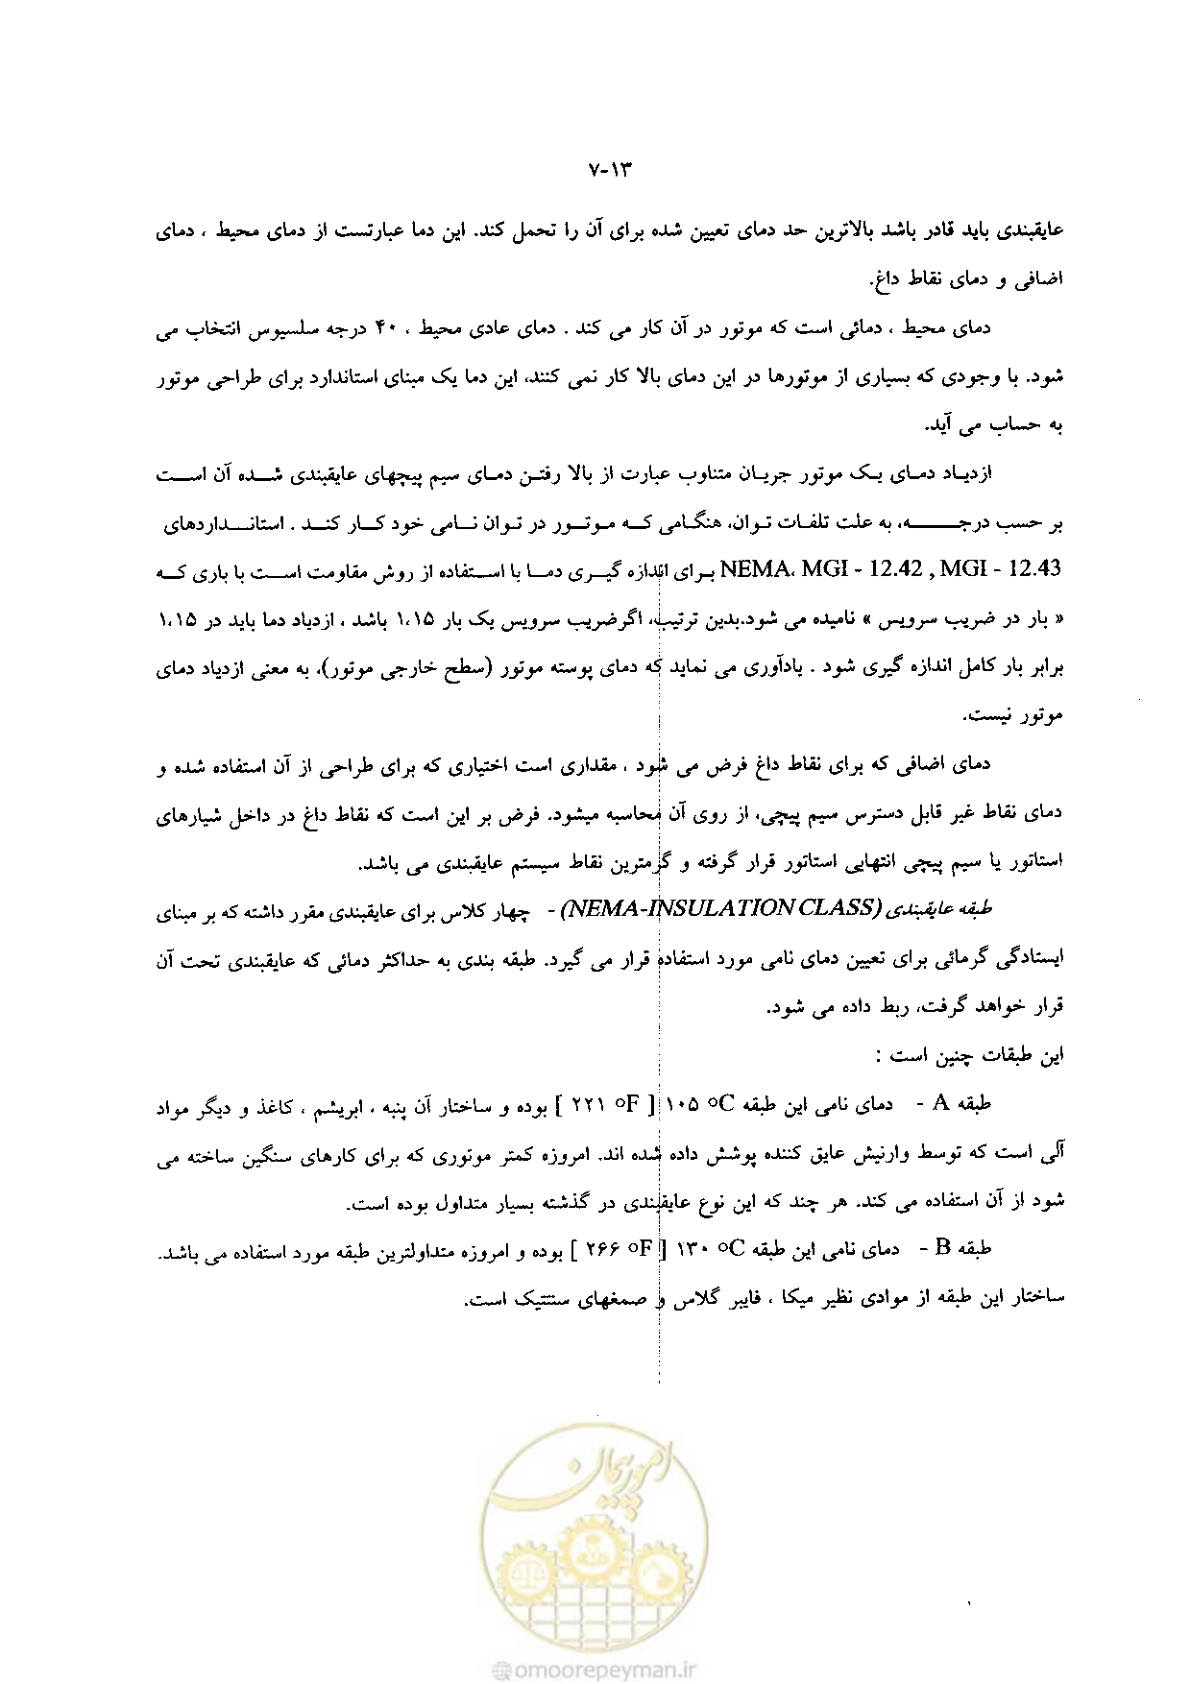 ۷-۱۳
عایقبندی باید قادر باشد بالاترین حد دمای تعیین شده برای آن را تحمل کند. این دما عبارتست از دمای محیط ، دمای
اضافی و دمای نقاط داغ.
دمای محیط ، دمائی است که موتور در آن کار می کند . دمای عادی محیط ، ۴۰ درجه سلسیوس انتخاب می
شود. با وجودی که بسیاری از موتورها در این دمای بالا کار نمی کنند، این دما یک مبنای استاندارد برای طراحی موتور
به حساب می آید.
ازدیاد دمای یک موتور جریان متناوب عبارت از بالا رفتن دمای سیم پیچهای عایقبندی شده آن است
بر حسب درجه، به علت تلفات توان، هنگامی که موتور در توان نامی خود کار کند . استانداردهای
NEMA، MGI - 12.42 , MGI - 12.43 برای اندازه گیری دما با استفاده از روش مقاومت است با باری که
« بار در ضریب سرویس » نامیده می شود.بدین ترتیب، اگرضریب سرویس یک بار ۱،۱۵ باشد ، ازدیاد دما باید در ۱،۱۵
برابر بار کامل اندازه گیری شود . یادآوری می نماید که دمای پوسته موتور (سطح خارجی موتور)، به معنی ازدیاد دمای
موتور نیست.
دمای اضافی که برای نقاط داغ فرض می شود ، مقداری است اختیاری که برای طراحی از آن استفاده شده و
دمای نقاط غیر قابل دسترس سیم پیچی، از روی آن محاسبه میشود. فرض بر این است که نقاط داغ در داخل شیارهای
استاتور یا سیم پیچی انتهایی استاتور قرار گرفته و گرمترین نقاط سیستم عایقبندی می باشد.
طبقه عایقبندی (NEMA-INSULATION CLASS) - چهار کلاس برای عایقبندی مقرر داشته که بر مبنای
ایستادگی گرمائی برای تعیین دمای نامی مورد استفاده قرار می گیرد. طبقه بندی به حداکثر دمائی که عایقبندی تحت آن
قرار خواهد گرفت، ربط داده می شود.
این طبقات چنین است :
طبقه A - دمای نامی این طبقه ۱۰۵ °C [ ۲۲۱ °F ] بوده و ساختار آن پنبه ، ابریشم ، کاغذ و دیگر مواد
آلی است که توسط وارنیش عایق کننده پوشش داده شده اند. امروزه کمتر موتوری که برای کارهای سنگین ساخته می
شود از آن استفاده می کند. هر چند که این نوع عایقبندی در گذشته بسیار متداول بوده است.
طبقه B - دمای نامی این طبقه ۱۳۰ °C [ ۲۶۶ °F ] بوده و امروزه متداولترین طبقه مورد استفاده می باشد.
ساختار این طبقه از موادی نظیر میکا ، فایبر گلاس و صمغهای سنتتیک است.
امور پیمان
@omoorepeyman.ir